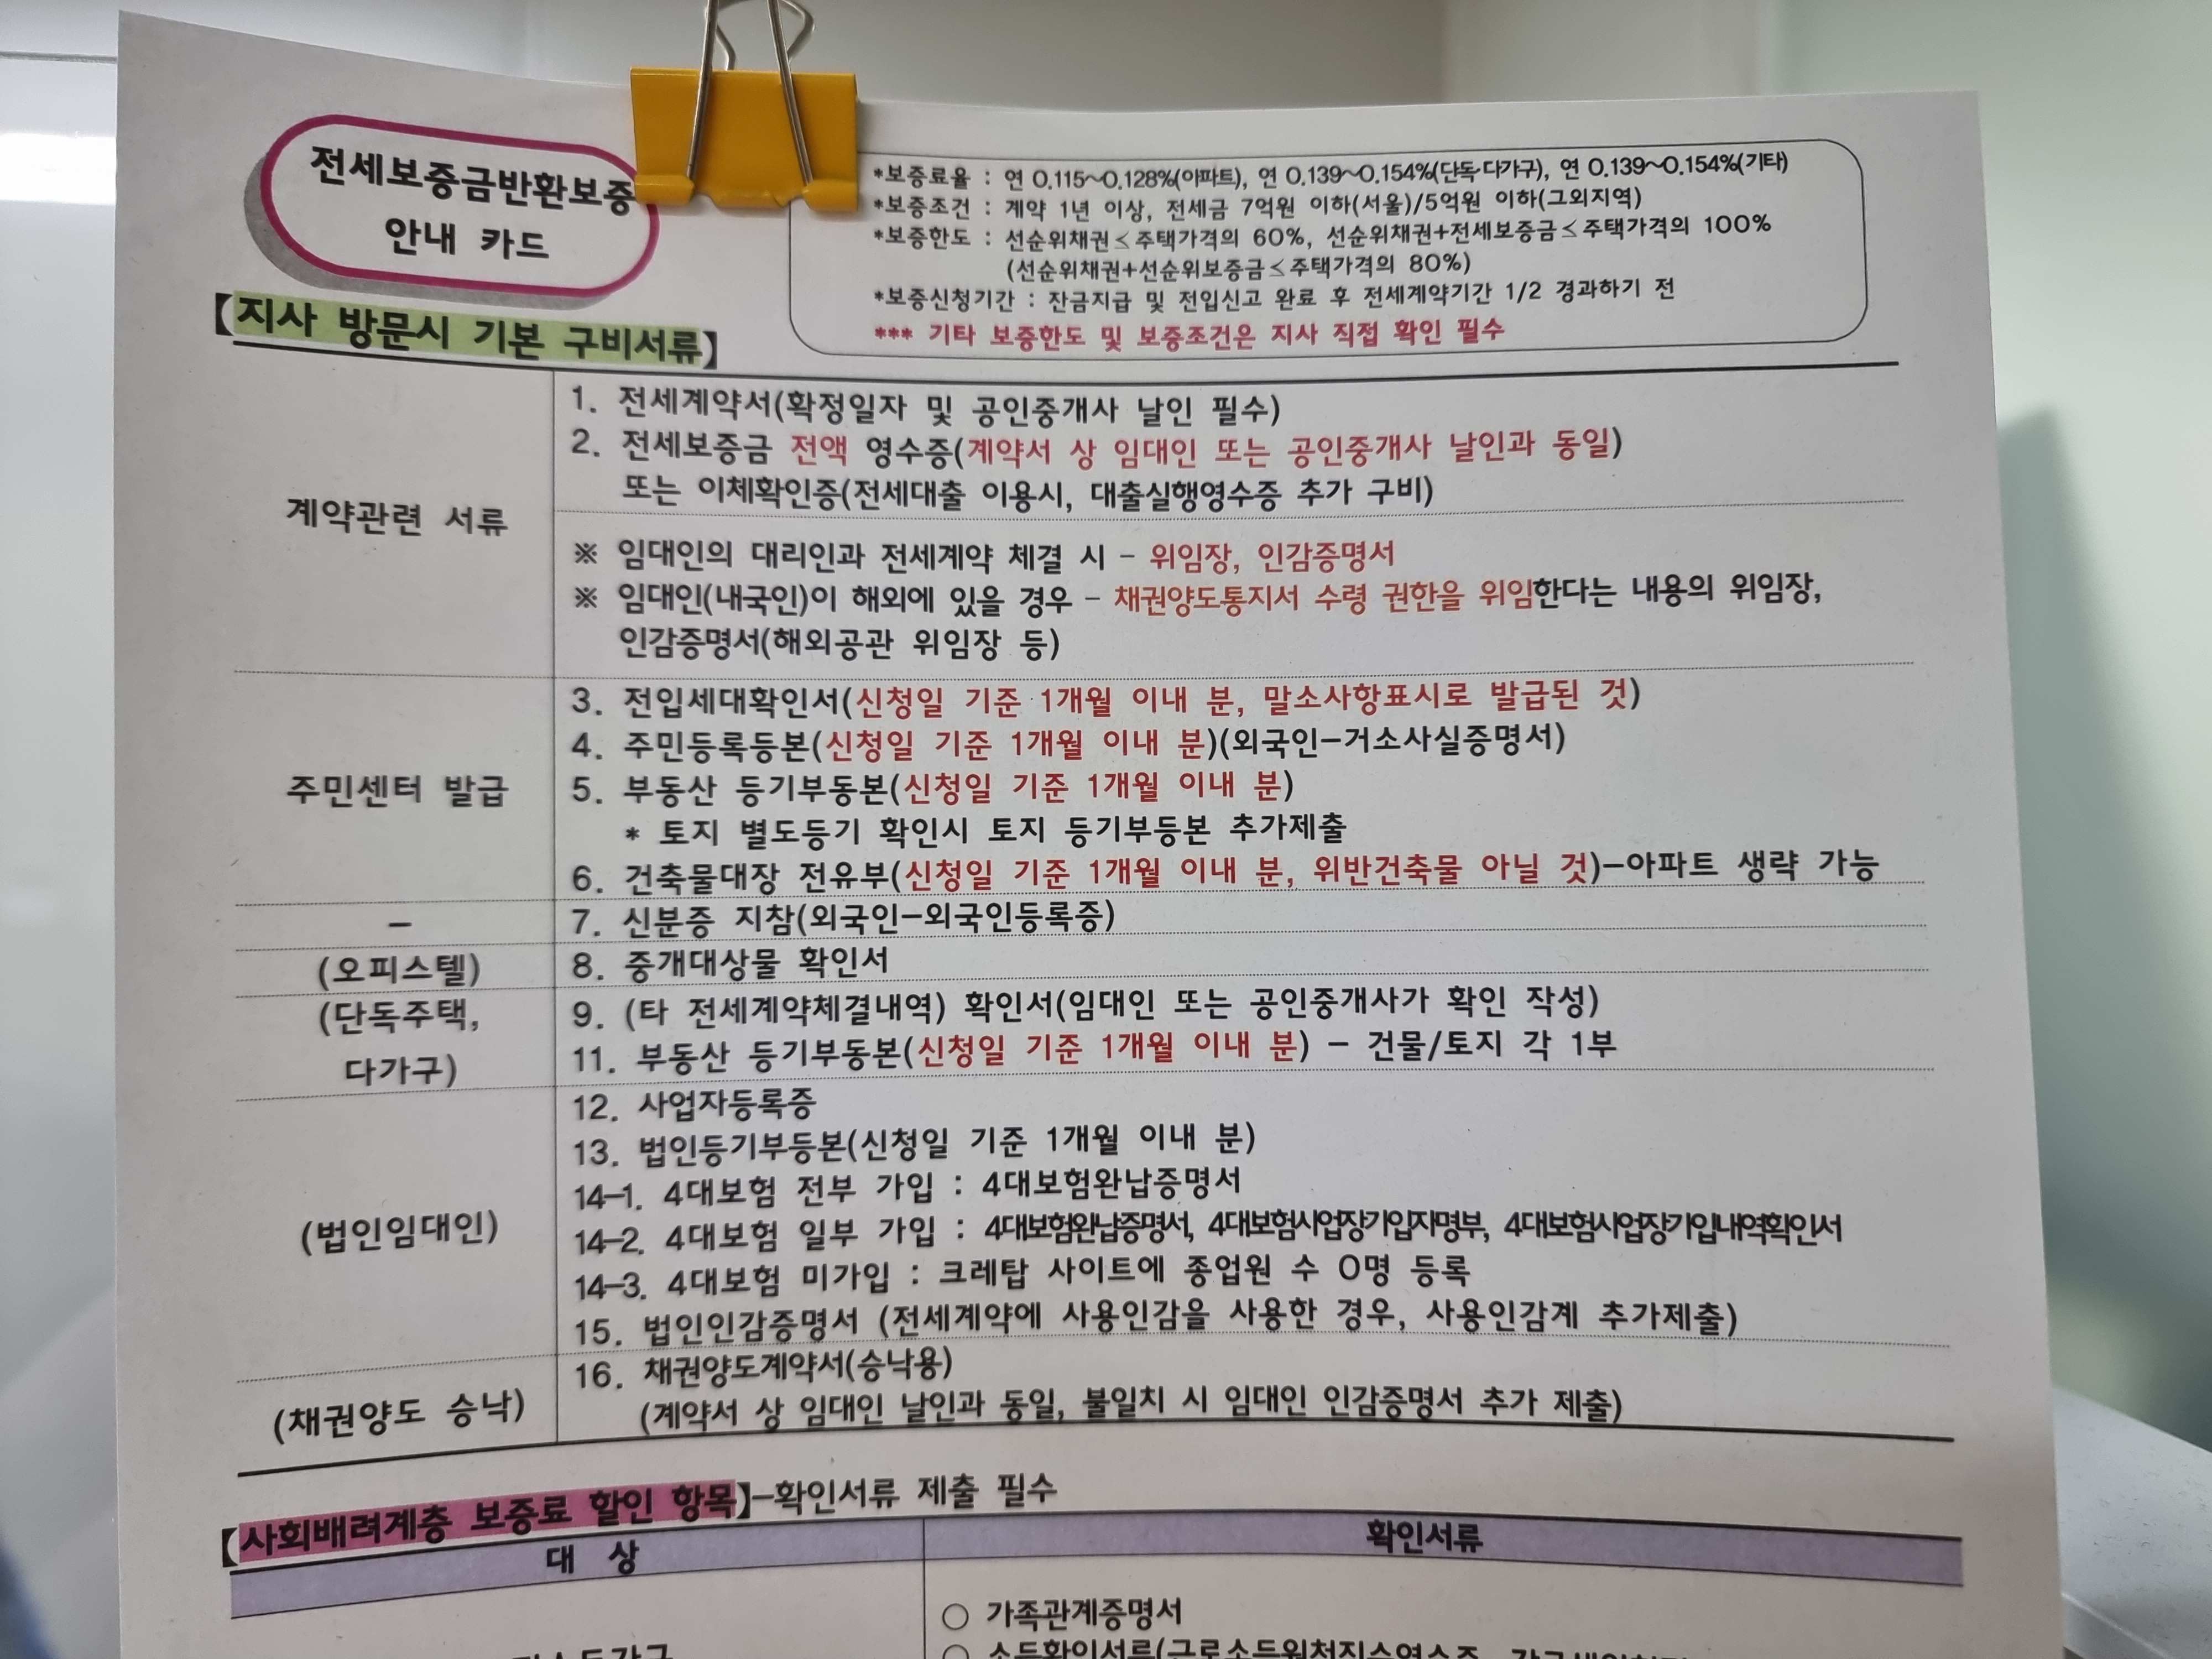 전세보증금반환보증
안내 카드
*보증료율 : 연 0.115~0.128%(아파트), 연 0.139~0.154%(단독·다가구), 연 0.139~0.154%(기타)
*보증조건 : 계약 1년 이상, 전세금 7억원 이하(서울)/5억원 이하(그외지역)
*보증한도 : 선순위채권≤주택가격의 60%, 선순위채권+전세보증금≤주택가격의 100%
(선순위채권+선순위보증금≤주택가격의 80%)
*보증신청기간 : 잔금지급 및 전입신고 완료 후 전세계약기간 1/2 경과하기 전
*** 기타 보증한도 및 보증조건은 지사 직접 확인 필수
【지사 방문시 기본 구비서류】
계약관련 서류
1. 전세계약서(확정일자 및 공인중개사 날인 필수)
2. 전세보증금 전액 영수증(계약서 상 임대인 또는 공인중개사 날인과 동일)
또는 이체확인증(전세대출 이용시, 대출실행영수증 추가 구비)
※ 임대인의 대리인과 전세계약 체결 시 - 위임장, 인감증명서
※ 임대인(내국인)이 해외에 있을 경우 - 채권양도통지서 수령 권한을 위임한다는 내용의 위임장,
인감증명서(해외공관 위임장 등)
주민센터 발급
3. 전입세대확인서(신청일 기준 1개월 이내 분, 말소사항표시로 발급된 것)
4. 주민등록등본(신청일 기준 1개월 이내 분)(외국인-거소사실증명서)
5. 부동산 등기부동본(신청일 기준 1개월 이내 분)
* 토지 별도등기 확인시 토지 등기부등본 추가제출
6. 건축물대장 전유부(신청일 기준 1개월 이내 분, 위반건축물 아닐 것)-아파트 생략 가능
-
7. 신분증 지참(외국인-외국인등록증)
(오피스텔)
8. 중개대상물 확인서
(단독주택,
다가구)
9. (타 전세계약체결내역) 확인서(임대인 또는 공인중개사가 확인 작성)
11. 부동산 등기부동본(신청일 기준 1개월 이내 분) - 건물/토지 각 1부
(법인임대인)
12. 사업자등록증
13. 법인등기부등본(신청일 기준 1개월 이내 분)
14-1. 4대보험 전부 가입 : 4대보험완납증명서
14-2. 4대보험 일부 가입 : 4대보험완납증명서, 4대보험사업장가입자명부, 4대보험사업장가입내역확인서
14-3. 4대보험 미가입 : 크레탑 사이트에 종업원 수 0명 등록
15. 법인인감증명서 (전세계약에 사용인감을 사용한 경우, 사용인감계 추가제출)
(채권양도 승낙)
16. 채권양도계약서(승낙용)
(계약서 상 임대인 날인과 동일, 불일치 시 임대인 인감증명서 추가 제출)
【사회배려계층 보증료 할인 항목】-확인서류 제출 필수
대 상
확인서류
○ 가족관계증명서